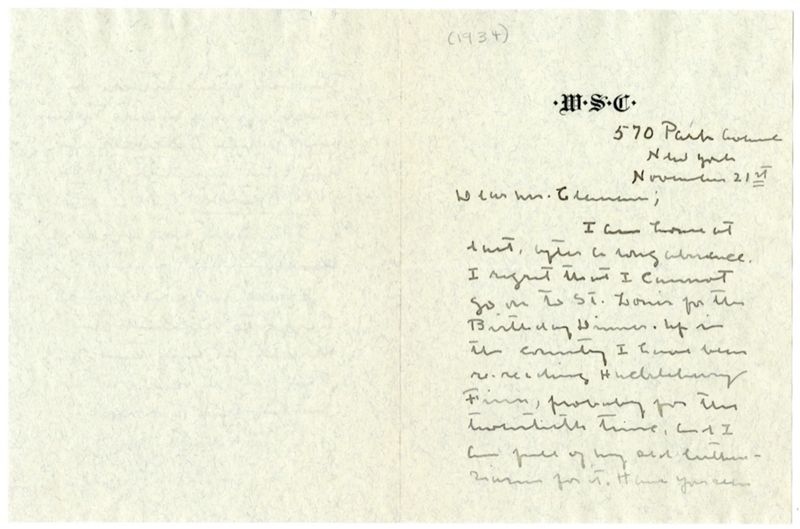 (1934)
·W·S·C·
570 Park Avenue
New York
November 21st
Dear Mr. Clemens;
I am home at
last, after a long absence.
I regret that I cannot
go on to St. Louis for the
Birthday Dinner. Up in
the country I have been
re-reading Huckleberry
Finn, probably for the
twentieth time, and I
am full of my old enthu-
siasm for it. Have you seen